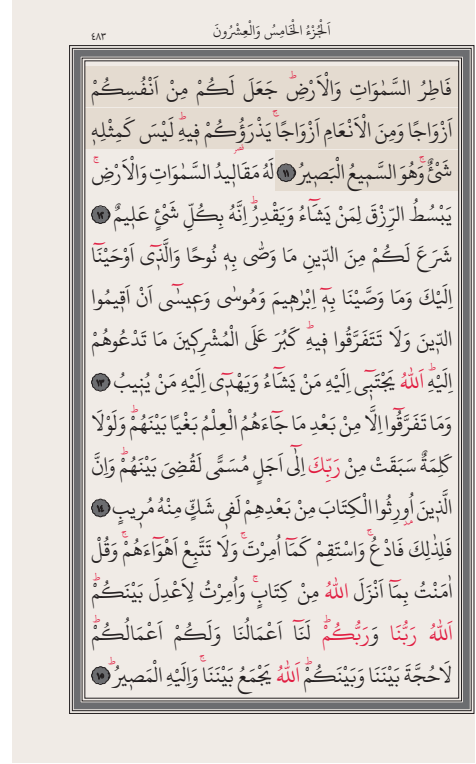 اَلْجُزْءُ الْخَامِسُ وَالْعِشْرُونَ
٤٨٣
فَاطِرُ السَّمٰوَاتِ وَالْاَرْضِۜ جَعَلَ لَكُمْ مِنْ اَنْفُسِكُمْ
اَزْوَاجًا وَمِنَ الْاَنْعَامِ اَزْوَاجًاۚ يَذْرَؤُ۬كُمْ ف۪يهِۜ لَيْسَ كَمِثْلِه۪
شَيْءٌۚ وَهُوَ السَّم۪يعُ الْبَص۪يرُ ﴿١١﴾ لَهُ مَقَال۪يدُ السَّمٰوَاتِ وَالْاَرْضِۚ
يَبْسُطُ الرِّزْقَ لِمَنْ يَشَٓاءُ وَيَقْدِرُۜ اِنَّهُ بِكُلِّ شَيْءٍ عَل۪يمٌ ﴿١٢﴾
شَرَعَ لَكُمْ مِنَ الدّ۪ينِ مَا وَصّٰى بِه۪ نُوحًا وَالَّذ۪ٓي اَوْحَيْنَٓا
اِلَيْكَ وَمَا وَصَّيْنَا بِه۪ٓ اِبْرٰه۪يمَ وَمُوسٰى وَع۪يسٰٓى اَنْ اَق۪يمُوا
الدّ۪ينَ وَلَا تَتَفَرَّقُوا ف۪يهِۜ كَبُرَ عَلَى الْمُشْرِك۪ينَ مَا تَدْعُوهُمْ
اِلَيْهِۜ اَللّٰهُ يَجْتَب۪ٓي اِلَيْهِ مَنْ يَشَٓاءُ وَيَهْد۪ٓي اِلَيْهِ مَنْ يُن۪يبُ ﴿١٣﴾
وَمَا تَفَرَّقُٓوا اِلَّا مِنْ بَعْدِ مَا جَٓاءَهُمُ الْعِلْمُ بَغْيًا بَيْنَهُمْۜ وَلَوْلَا
كَلِمَةٌ سَبَقَتْ مِنْ رَبِّكَ اِلٰٓى اَجَلٍ مُسَمًّى لَقُضِيَ بَيْنَهُمْۜ وَاِنَّ
الَّذ۪ينَ اُو۫رِثُوا الْكِتَابَ مِنْ بَعْدِهِمْ لَف۪ي شَكٍّ مِنْهُ مُر۪يبٍ ﴿١٤﴾
فَلِذٰلِكَ فَادْعُۚ وَاسْتَقِمْ كَمَٓا اُمِرْتَۚ وَلَا تَتَّبِعْ اَهْوَٓاءَهُمْۚ وَقُلْ
اٰمَنْتُ بِمَٓا اَنْزَلَ اللّٰهُ مِنْ كِتَابٍۚ وَاُمِرْتُ لِاَعْدِلَ بَيْنَكُمْۜ
اَللّٰهُ رَبُّنَا وَرَبُّكُمْۜ لَنَٓا اَعْمَالُنَا وَلَكُمْ اَعْمَالُكُمْۜ
لَا حُجَّةَ بَيْنَنَا وَبَيْنَكُمْۜ اَللّٰهُ يَجْمَعُ بَيْنَنَاۚ وَاِلَيْهِ الْمَص۪يرُۜ ﴿١٥﴾